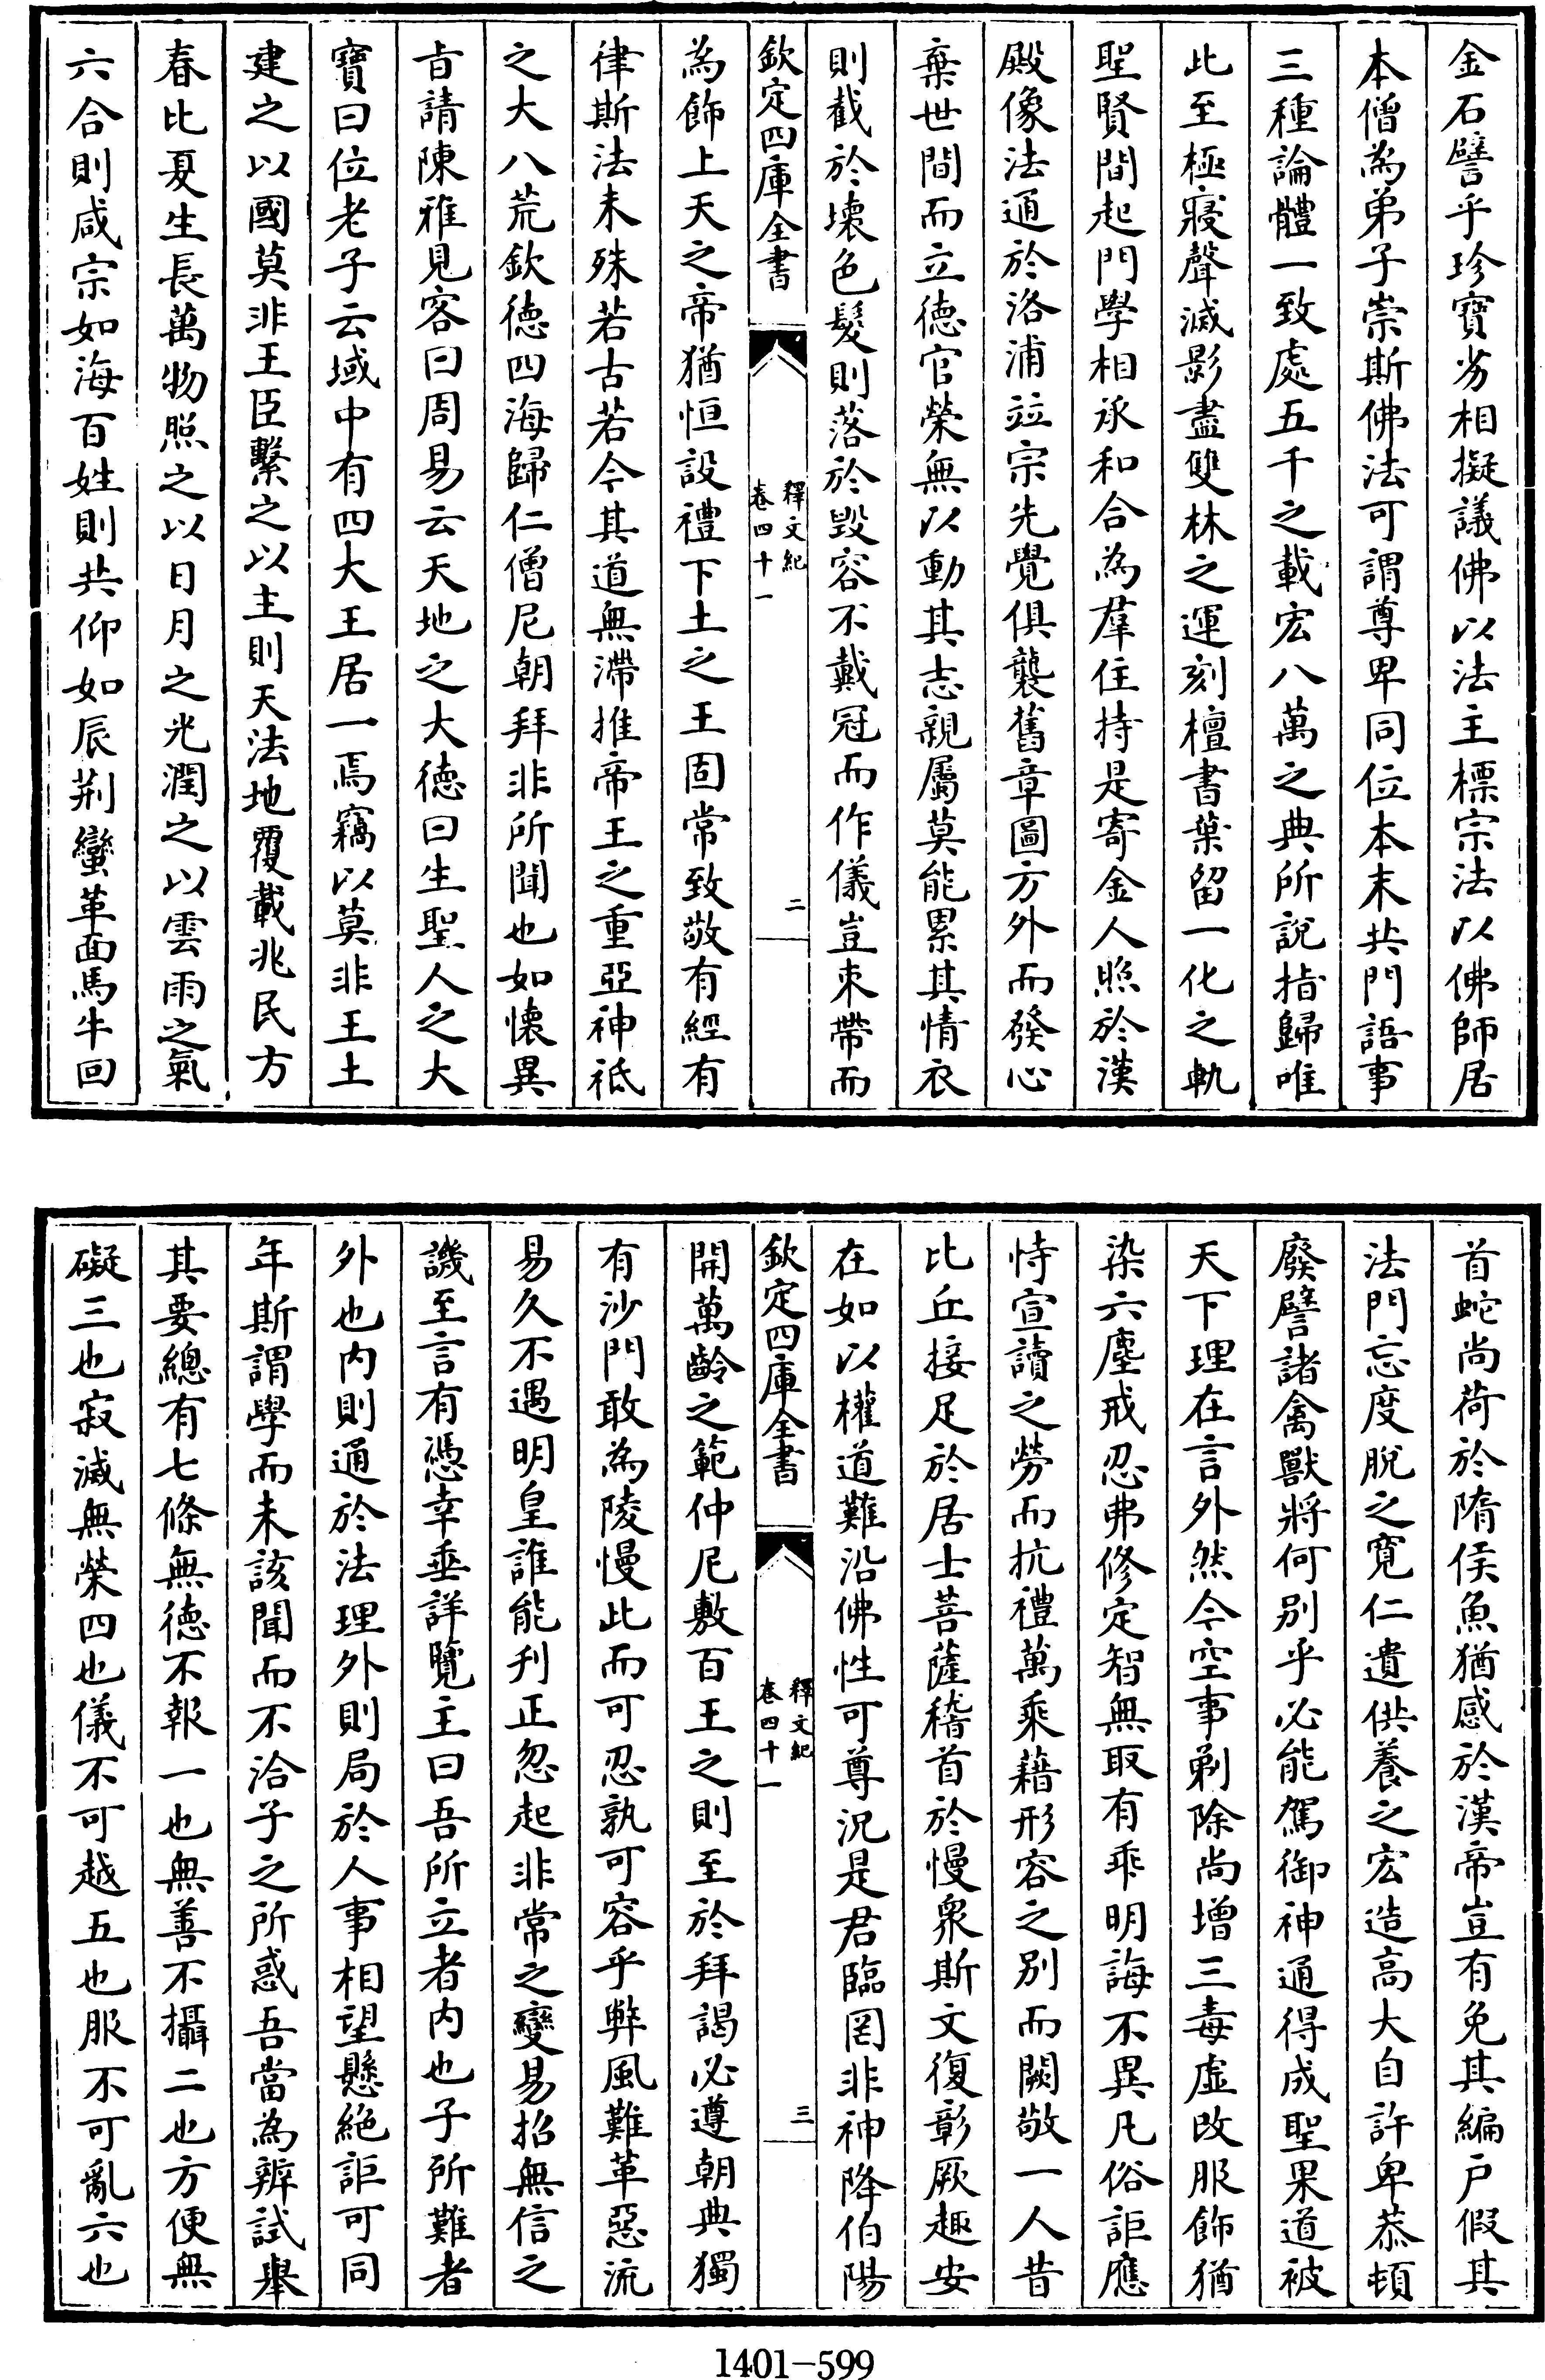 金石譬乎珍寶劣相擬議佛以法主標宗法以佛師居
本僧為弟子崇斯佛法可謂尊卑同位本末共門語事
三種論體一致處五千之載宏八萬之典所說指歸唯
此至極寢聲滅影盡雙林之運刻檀書葉留一化之軌
聖賢間起門學相承和合為羣住持是寄金人照於漢
殿像法通於洛浦竝宗先覺俱襲舊章圖方外而發心
棄世間而立德官榮無以動其志親屬莫能累其情衣
則截於壞色髮則落於毀容不戴冠而作儀豈束帶而
欽定四庫全書
釋文紀
卷四十一
二
為飾上天之帝猶恒設禮下土之王固常致敬有經有
律斯法未殊若古若今其道無滯推帝王之重亞神祇
之大八荒欽德四海歸仁僧尼朝拜非所聞也如懷異
旨請陳雅見客曰周易云天地之大德曰生聖人之大
寶曰位老子云域中有四大王居一焉竊以莫非王土
建之以國莫非王臣繫之以主則天法地覆載兆民方
春比夏生長萬物照之以日月之光潤之以雲雨之氣
六合則咸宗如海百姓則共仰如辰荆蠻革面馬牛回
首蛇尚荷於隋侯魚猶感於漢帝豈有免其編戶假其
法門忘度脫之寛仁遺供養之宏造高大自許卑恭頓
廢譬諸禽獸將何別乎必能駕御神通得成聖果道被
天下理在言外然今空事剃除尚增三毒虛改服飾猶
染六塵戒忍弗修定智無取有乖明誨不異凡俗詎應
恃宣讀之勞而抗禮萬乘藉形容之別而闕敬一人昔
比丘接足於居士菩薩稽首於慢衆斯文復彰厥趣安
在如以權道難沿佛性可尊況是君臨罔非神降伯陽
欽定四庫全書
釋文紀
卷四十一
三
開萬齡之範仲尼敷百王之則至於拜謁必遵朝典獨
有沙門敢為陵慢此而可忍孰可容乎弊風難革惡流
易久不遇明皇誰能刋正忽起非常之變易招無信之
譏至言有憑幸垂詳覽主曰吾所立者内也子所難者
外也内則通於法理外則局於人事相望懸絶詎可同
年斯謂學而未該聞而不洽子之所惑吾當為辨試舉
其要總有七條無德不報一也無善不攝二也方便無
礙三也寂滅無榮四也儀不可越五也服不可亂六也
1401-599